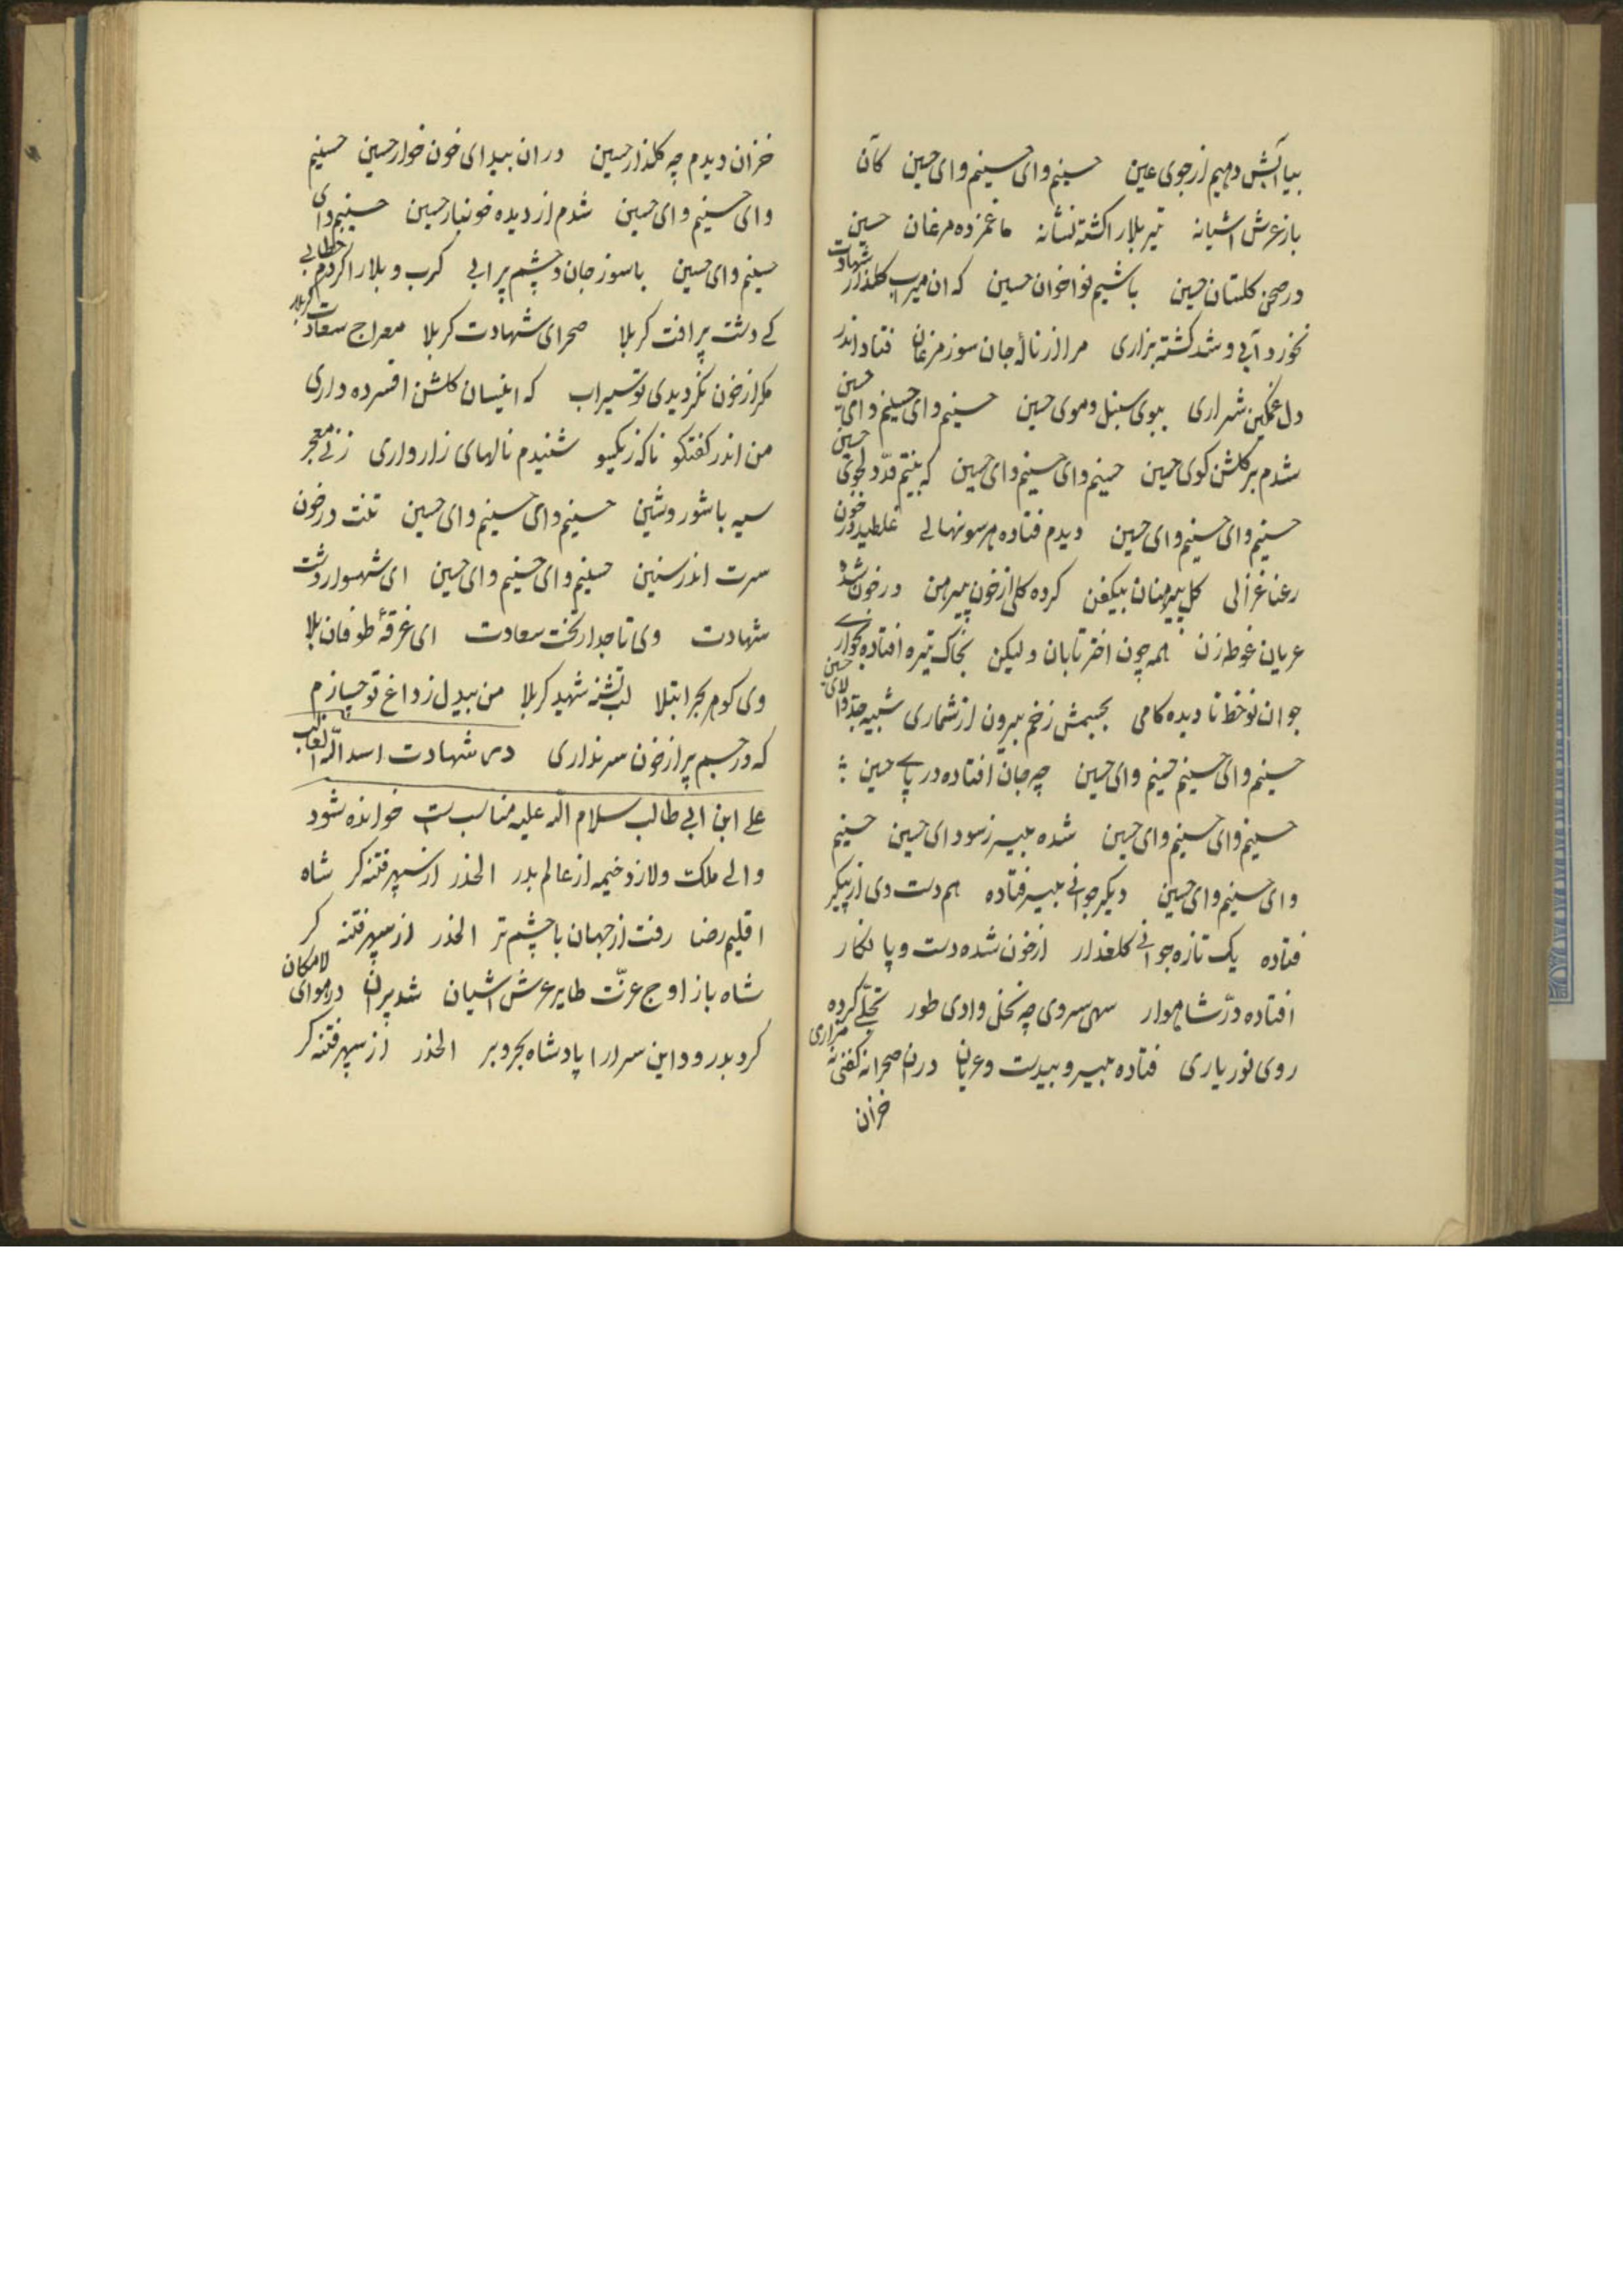 بیا آبش دهیم از جوی عین حسینم وای حسینم وای حسین کآن
باز عرش اشیانه تیر بلا را کشته نشانه ما غمزده مرغان حسین
در صحن کلستان حسین باشیم نواخوان حسین که ان میراب کلذار شهادت
نخورد آبی و شد کشته بزاری مرا از نالهٔ جان سوز مرغان فتاد اندر
دل غمکین شراری ببوی سنبل و موی حسین حسینم وای حسینم وای حسین
شدم بر کلشن کوی حسین حسینم وای حسینم وای حسین که بینم قدّ دلجوی حسین
حسینم وای حسینم وای حسین دیدم فتاده هر سو نهالی غلطیده در خون
رعنا غزالی کل پیرهنان بیکفن کرده کلی از خون پیرهن در خون شده
عریان غوطه زن همه چون اختر تابان ولیکن بخاک تیره افتاده بخواری
جوان نوخط نادیده کامی بجسمش زخم بیرون از شماری شبیه جد والای حسین
حسینم وای حسینم حسینم وای حسین چه جان افتاده در پای حسین
حسینم وای حسینم وای حسین شده بیسر ز سودای حسین حسینم
وای حسینم وای حسین دیکر جوانی بیسر فتاده هم دست وی از پیکر
فتاده یک تازه جوانی کلعذار از خون شده دست و پا نکار
افتاده درّ شاهوار سهی سروی چه نخل وادی طور تجلّی کرده
روی نور باری فتاده بیسر و بیدست و عریان دران صحرا نه کفنی نه مزاری
خزان
خزان دیدم چه کلذار حسین دران بیدای خون خوار حسین حسینم
وای حسینم وای حسین شدم از دیده خونبار حسین حسینم وای
حسینم وای حسین با سوز جان و چشم پر ابی کرب و بلا را کردم خطابی
کی دشت پر افت کربلا صحرای شهادت کربلا معراج سعادت کربلا
مکر از خون نکردیدی تو سیراب که اینسان کلشن افسرده داری
من اندر کفتکو ناکه ز یکسو شنیدم نالهای زار واری زنی معجر
سیه با شور و شین حسینم وای حسینم وای حسین تنت در خون
سرت اندر سنین حسینم وای حسینم وای حسین ای شهسوار دشت
شهادت وی تاجدار تخت سعادت ای غرقهٔ طوفان بلا
وی کوهر بحر ابتلا لب تشنه شهید کربلا من بیدل ز داغ تو چسازم
که در جسم پر از خون سر نداری در شهادت اسد الله الغالب
علی ابن ابی طالب سلام الله علیه مناسب ست خوانده شود
والی ملک ولا زد خیمه از عالم بدر الحذر از سپهر فتنه کر شاه
اقلیم رضا رفت از جهان با چشم تر الحذر از سپهر فتنه کر
شاه باز اوج عزّت طایر عرش اشیان شد پران در هوای لامکان
کرد بدرود این سرا را پادشاه بحر و بر الحذر از سپهر فتنه کر